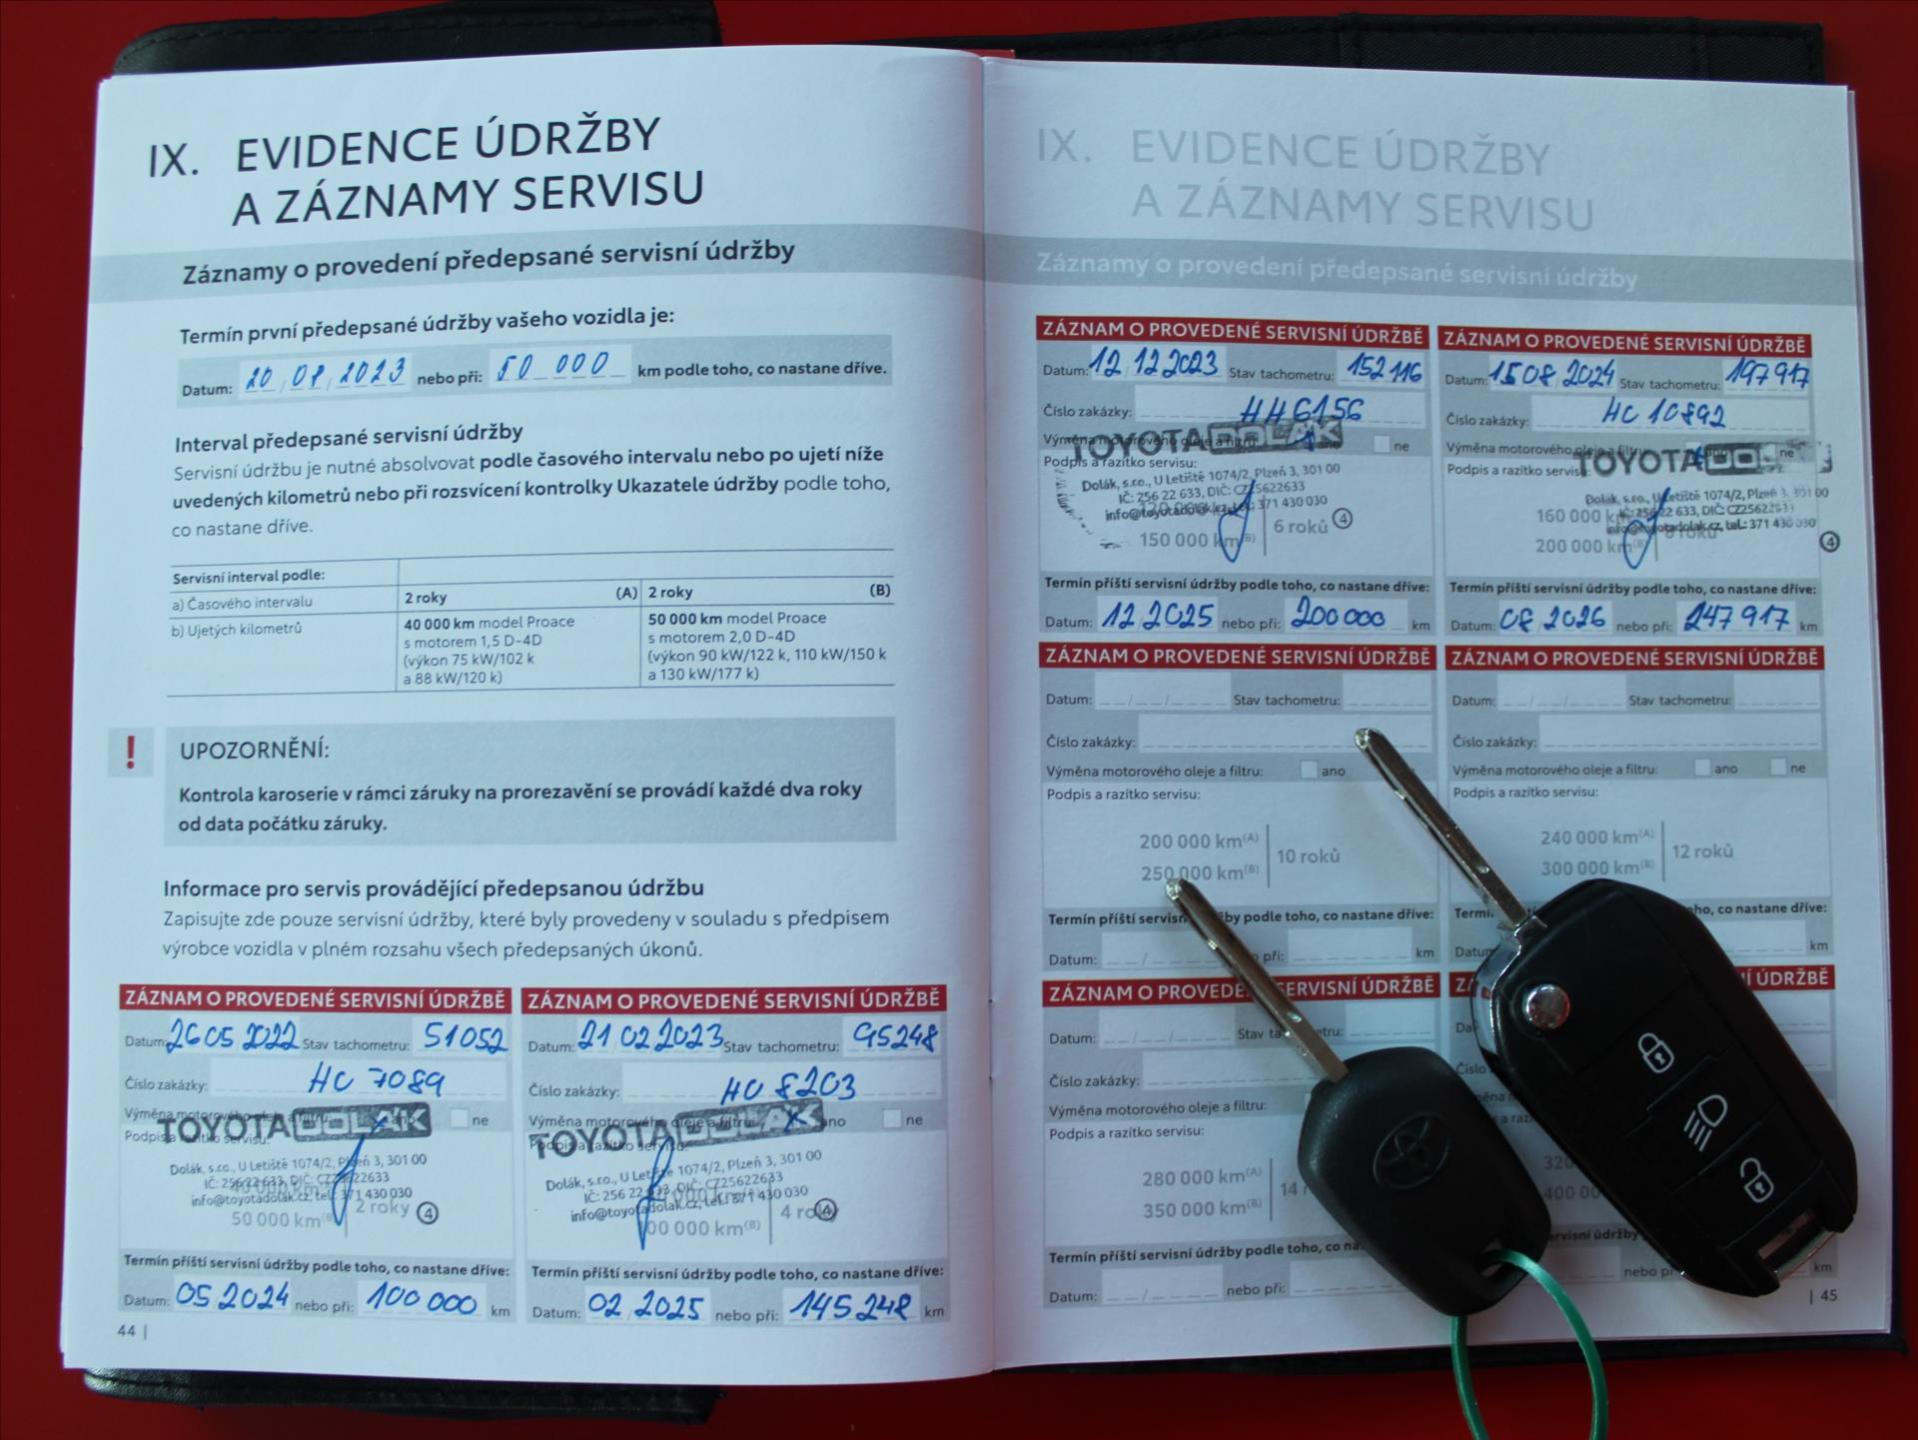 IX. EVIDENCE ÚDRŽBY
A ZÁZNAMY SERVISU
Záznamy o provedení předepsané servisní údržby
Termín první předepsané údržby vašeho vozidla je:
Datum: nebo při: 50 000 km podle toho, co nastane dříve.
Interval předepsané servisní údržby
Servisní údržbu je nutné absolvovat podle časového intervalu nebo po ujetí níže
uvedených kilometrů nebo při rozsvícení kontrolky Ukazatele údržby podle toho,
co nastane dříve.
Servisní interval podle:
a) Časového intervalu 2 roky (A) 2 roky (B)
b) Ujetých kilometrů 40 000 km model Proace 50 000 km model Proace
s motorem 1,5 D-4D s motorem 2,0 D-4D
(výkon 75 kW/102 k (výkon 90 kW/122 k, 110 kW/150 k
a 88 kW/120 k) a 130 kW/177 k)
! UPOZORNĚNÍ:
Kontrola karoserie v rámci záruky na prorezavění se provádí každé dva roky
od data počátku záruky.
Informace pro servis provádějící předepsanou údržbu
Zapisujte zde pouze servisní údržby, které byly provedeny v souladu s předpisem
výrobce vozidla v plném rozsahu všech předepsaných úkonů.
ZÁZNAM O PROVEDENÉ SERVISNÍ ÚDRŽBĚ
Datum: 26 05 2022 Stav tachometru: 51052
Číslo zakázky: HC 7089
Výměna motorového oleje a filtru: x ano ne
TOYOTA DOLÁK
Podpis a razítko servisu:
Dolák, s.r.o., U Letiště 1074/2, Plzeň 3, 301 00
IČ: 256 22 633, DIČ: CZ25622633
info@toyotadolak.cz, tel.: 371 430 030
50 000 km(B) 2 roky 4
Termín příští servisní údržby podle toho, co nastane dříve:
Datum: 05 2024 nebo při: 100 000 km
44 |
ZÁZNAM O PROVEDENÉ SERVISNÍ ÚDRŽBĚ
Datum: 21 02 2023 Stav tachometru: 95248
Číslo zakázky: HC 8203
Výměna motorového oleje a filtru: x ano ne
TOYOTA DOLÁK
Podpis a razítko servisu:
Dolák, s.r.o., U Letiště 1074/2, Plzeň 3, 301 00
IČ: 256 22 633, DIČ: CZ25622633
info@toyotadolak.cz, tel.: 371 430 030
100 000 km(B) 4 roky 4
Termín příští servisní údržby podle toho, co nastane dříve:
Datum: 02 2025 nebo při: 145 248 km
IX. EVIDENCE ÚDRŽBY
A ZÁZNAMY SERVISU
Záznamy o provedení předepsané servisní údržby
ZÁZNAM O PROVEDENÉ SERVISNÍ ÚDRŽBĚ
Datum: 12 12 2023 Stav tachometru: 152 116
Číslo zakázky: HH6156
Výměna motorového oleje a filtru: ano ne
TOYOTA DOLÁK
Podpis a razítko servisu:
Dolák, s.r.o., U Letiště 1074/2, Plzeň 3, 301 00
IČ: 256 22 633, DIČ: CZ25622633
info@toyotadolak.cz, tel.: 371 430 030
120 000 km
150 000 km(B) 6 roků 4
Termín příští servisní údržby podle toho, co nastane dříve:
Datum: 12 2025 nebo při: 200 000 km
ZÁZNAM O PROVEDENÉ SERVISNÍ ÚDRŽBĚ
Datum: 15 08 2024 Stav tachometru: 197 917
Číslo zakázky: HC 10892
Výměna motorového oleje a filtru: ne
TOYOTA
Podpis a razítko servisu:
Dolák, s.r.o., U Letiště 1074/2, Plzeň 3, 301 00
IČ: 256 22 633, DIČ: CZ25622633
info@toyotadolak.cz, tel.: 371 430 030
160 000 km
200 000 km(B) 8 roků 4
Termín příští servisní údržby podle toho, co nastane dříve:
Datum: 08 2026 nebo při: 247 917 km
ZÁZNAM O PROVEDENÉ SERVISNÍ ÚDRŽBĚ
Datum: Stav tachometru:
Číslo zakázky:
Výměna motorového oleje a filtru: ano
Podpis a razítko servisu:
200 000 km(A)
250 000 km(B) 10 roků
Termín příští údržby podle toho, co nastane dříve:
Datum: při: km
ZÁZNAM O PROVEDENÉ SERVISNÍ ÚDRŽBĚ
Datum: Stav tachometru:
Číslo zakázky:
Výměna motorového oleje a filtru: ano ne
Podpis a razítko servisu:
240 000 km(A)
300 000 km(B) 12 roků
toho, co nastane dříve:
km
ZÁZNAM O SERVISNÍ ÚDRŽBĚ
Datum: Stav
Číslo zakázky:
Výměna motorového oleje a filtru:
Podpis a razítko servisu:
280 000 km(A)
350 000 km(B) 14
Termín příští servisní údržby podle toho, co
Datum: nebo při:
400 00
km
| 45